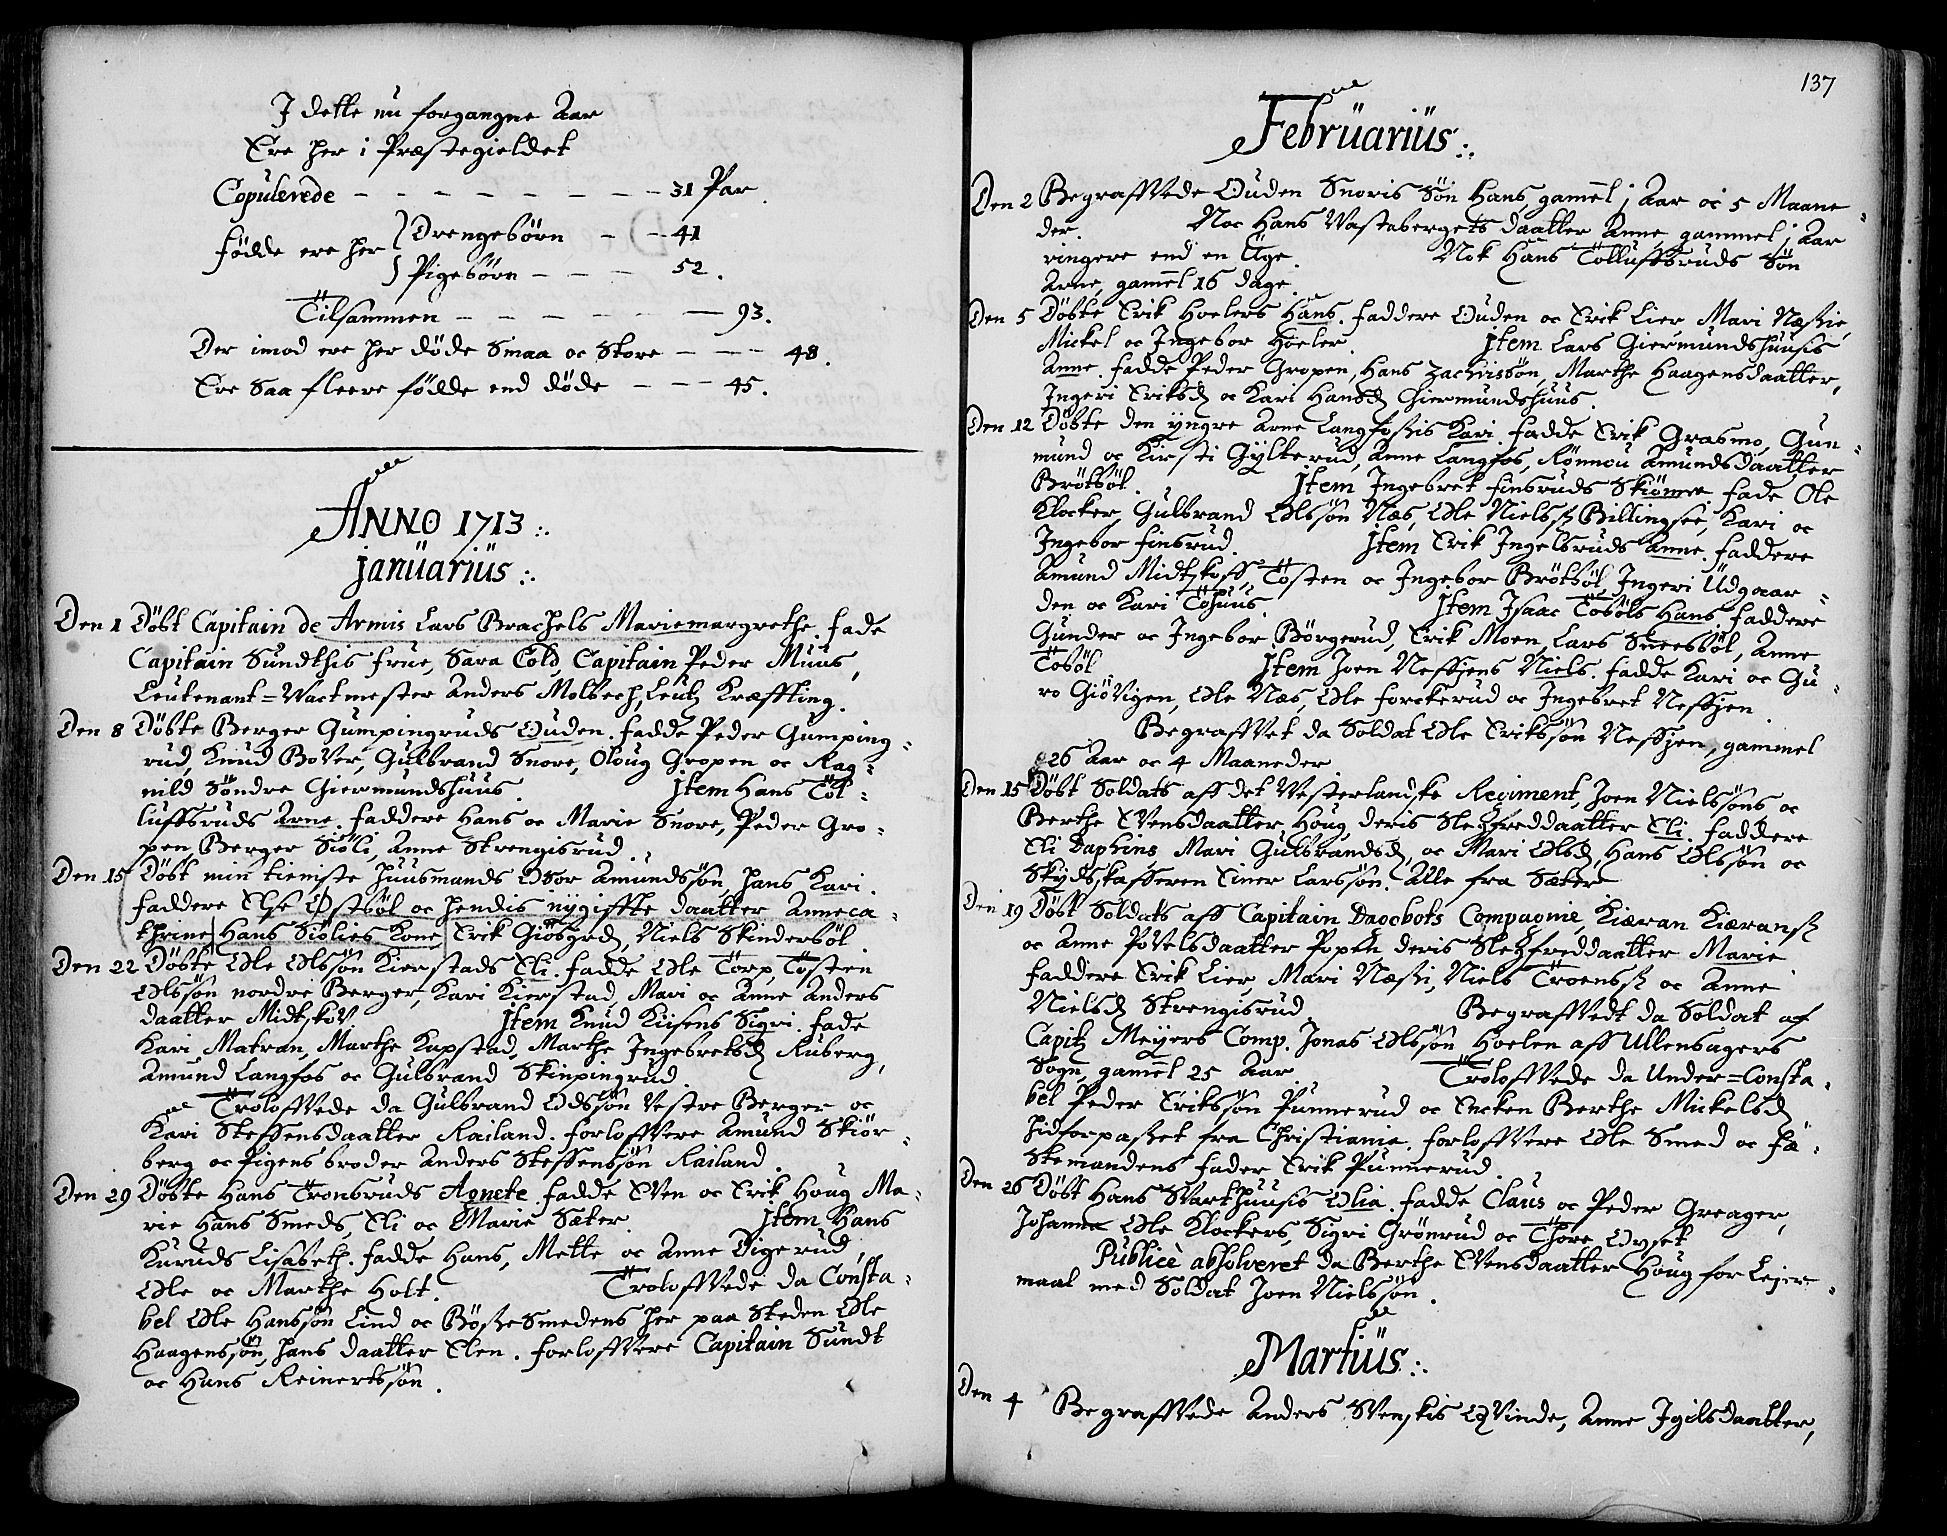 I dette nu forgangne Aar
Ere her i Præstegieldet
Copulerede - - - - - - - - 31 Par.
Fødde ere her } Drengebørn - - 41
} Pigebørn - - - - 52.
Tilsammen - - - - - - - 93.
Der imod ere her døde Smaa oc Store - - - 48.
Ere Saa fleere fødde end døde - - - 45.
ANNO 1713.
januarius.
Den 1 Døbt Capitain de Armis Lars Brachels Mariemargrethe. Fade
Capitain Sundthis Frue, Sara Cold, Capitain Peder Muus,
Leutenant=Wactmester Anders Molbech, Leut Kræffting.
Den 8 Døbte Berger Gumpingruds Ouden. Fadde Peder Gumping=
rud, Knud Bover, Gulbrand Snore, Oloug Gropen oc Rag=
nild Søndre Giermundshuus. jtem Hans Tol=
luffsruds Arne. Faddere Hans oc Marie Snore, Peder Gro=
pen Berger Siøli, Anne Strengisrud.
Den 15 Døbt min tiemste Huusmands Osor Amundssøn hans Kari.
Faddere Else Østbøl oc hendis nygiffte daatter Anneca=
thrine Hans Siølies Kone Erik Giøsgrd, Niels Skindersbøl.
Den 22 Døbte Ole Olssøn Kierstads Eli. Fadde Ole Torp, Tosten
Olssøn nordre Berger, Kari Kierstad, Mari oc Anne Anders
daatter Midtskov. jtem Knud Kiisens Sigri. Fade
Kari Matran, Marthe Kapstad, Marthe Ingebretsd Ruberg,
Amund Langfos oc Gulbrand Skinpingrud.
Troloffvede da Gulbrand Odssøn Vestre Berger oc
Kari Steffensdaatter Railand. Forloffvere Amund Skiør=
berg oc Pigens broder Anders Steffenssøn Railand.
Den 29 Døbte Hans Tronsruds Agnete. Fadde Sven oc Erik Houg, Ma=
rie Hans Smeds, Eli oc Marie Sæter. jtem Hans
Kuruds Lisabeth. Fadde Hans, Mette oc Anne Digerud,
Ole oc Marthe Holt. Troloffvede da Consta=
bel Ole Hanssøn Lind oc Bøsse Smedens her paa Steden Ole
Haagenssøn, hans daatter Elen. Forloffvere Capitain Sundt
oc Hans Reinertssøn.
137
Februarius.
Den 2 Begraffvede Ouden Snoris Søn Hans, gamel j Aar oc 5 Maane=
der. Noc Hans Vastabergets daatter Anne gammel j Aar
ringere end en Uge. Nok Hans Tolluffsruds Søn
Arne, gamel 16 dage.
Den 5 Døbte Erik Hoelers Hans. Faddere Ouden oc Erik Lier, Mari Næssie,
Mickel oc Ingebor Hoeler. jtem Lars Giermundshuusis
Anne. Fadde Peder Gropen, Hans Zachrissøn, Marthe Haagensdaatter,
Ingeri Eriksd oc Kari Hansd Giermundshuus.
Den 12 Døbte den yngre Arne Langfossis Kari. Fadde Erik Grasmo, Gun=
mund oc Kirsti Gylterud, Anne Langfos, Rønnou Amundsdaatter
Brøtbøl. jtem Ingebret Finsruds Skiømer. Fade Ole
Klocker, Gulbrand Olssøn Næs, Ole Nielss Billingsøe, Kari oc
Ingebor Finsrud. jtem Erik Ingelsruds Anne. Faddere
Amund Midtskoff, Tosten oc Ingebor Brøtbøl Ingeri Udgaar=
den oc Kari Tohuus. jtem Isaac Tobøls Hans. Faddere
Gunder oc Ingebor Børgerud, Erik Moen, Lars Sneesbøl, Anne
Tobøl jtem Joen Neffsiens Niels. Fadde Kari oc Gu=
ro Giøvigen, Ole Næs, Ole Forckerud oc Ingebret Neffsien.
Begraffvet da Soldat Ole Erikssøn Neffsien, gammel
26 Aar oc 4 Maaneder
Den 15 Døbt Soldats aff det Vesterlandske Regiment, Joen Nielssøns oc
Berthe Svensdaatter Houg, deris Slegfreddaatter Eli. Faddere
Eli Daphins Mari Gulbrandsd, oc Mari Olsd, Hans Olssøn oc
Skydskafferen Einer Larssøn. Alle fra Sæter
Den 19 Døbt Soldats aff Capitain Daochots Compagnie, Kiæran Kiærans
oc Anne Povelsdaatter Popen deris Slegfreddaatter Marie
Faddere Erik Lier, Mari Næssi, Niels Troenss oc Anne
Nielsd Strengisrud. Begraffvedt da Soldat af
Capit Meyers Comp. Jonas Olssøn Hoelen aff Ullensagers
Sogn, gamel 25 Aar Troloffvede da Under=Consta=
bel Peder Erikssøn Punnerud oc Encken Berthe Mickelsd
hidforpasset fra Christiania. Forloffvere Ole Smed oc Fæ=
stemandens Fader Erik Punnerud.
Den 26 Døbt Hans Svarthuusis Olia. Fadde Claus oc Peder Greager,
Johanne Ole Klockers, Sigri Grønrud oc Thore Odyset
Publicè absolveret da Berthe Svensdaatter Houg for Leier=
maal med Soldat Joen Nielssøn.
Martius.
Den 4 Begraffvede Anders Svenskis Qvinde, Anne Igilsdaatter,